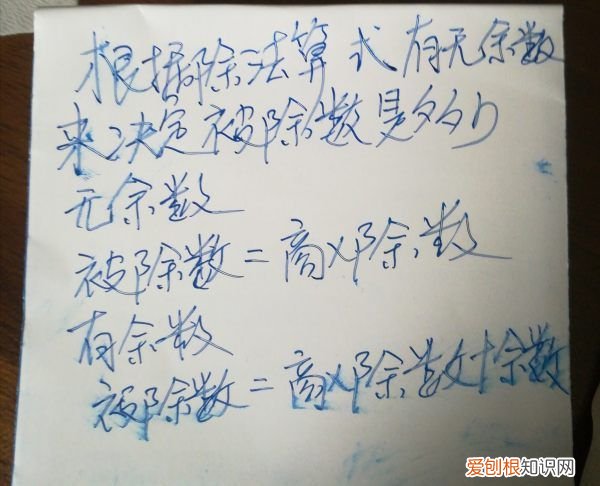 根据除法算式有无余数
来决定被除数是多少
无余数
被除数=商×除数
有余数
被除数=商×除数+余数
爱刨根知识网